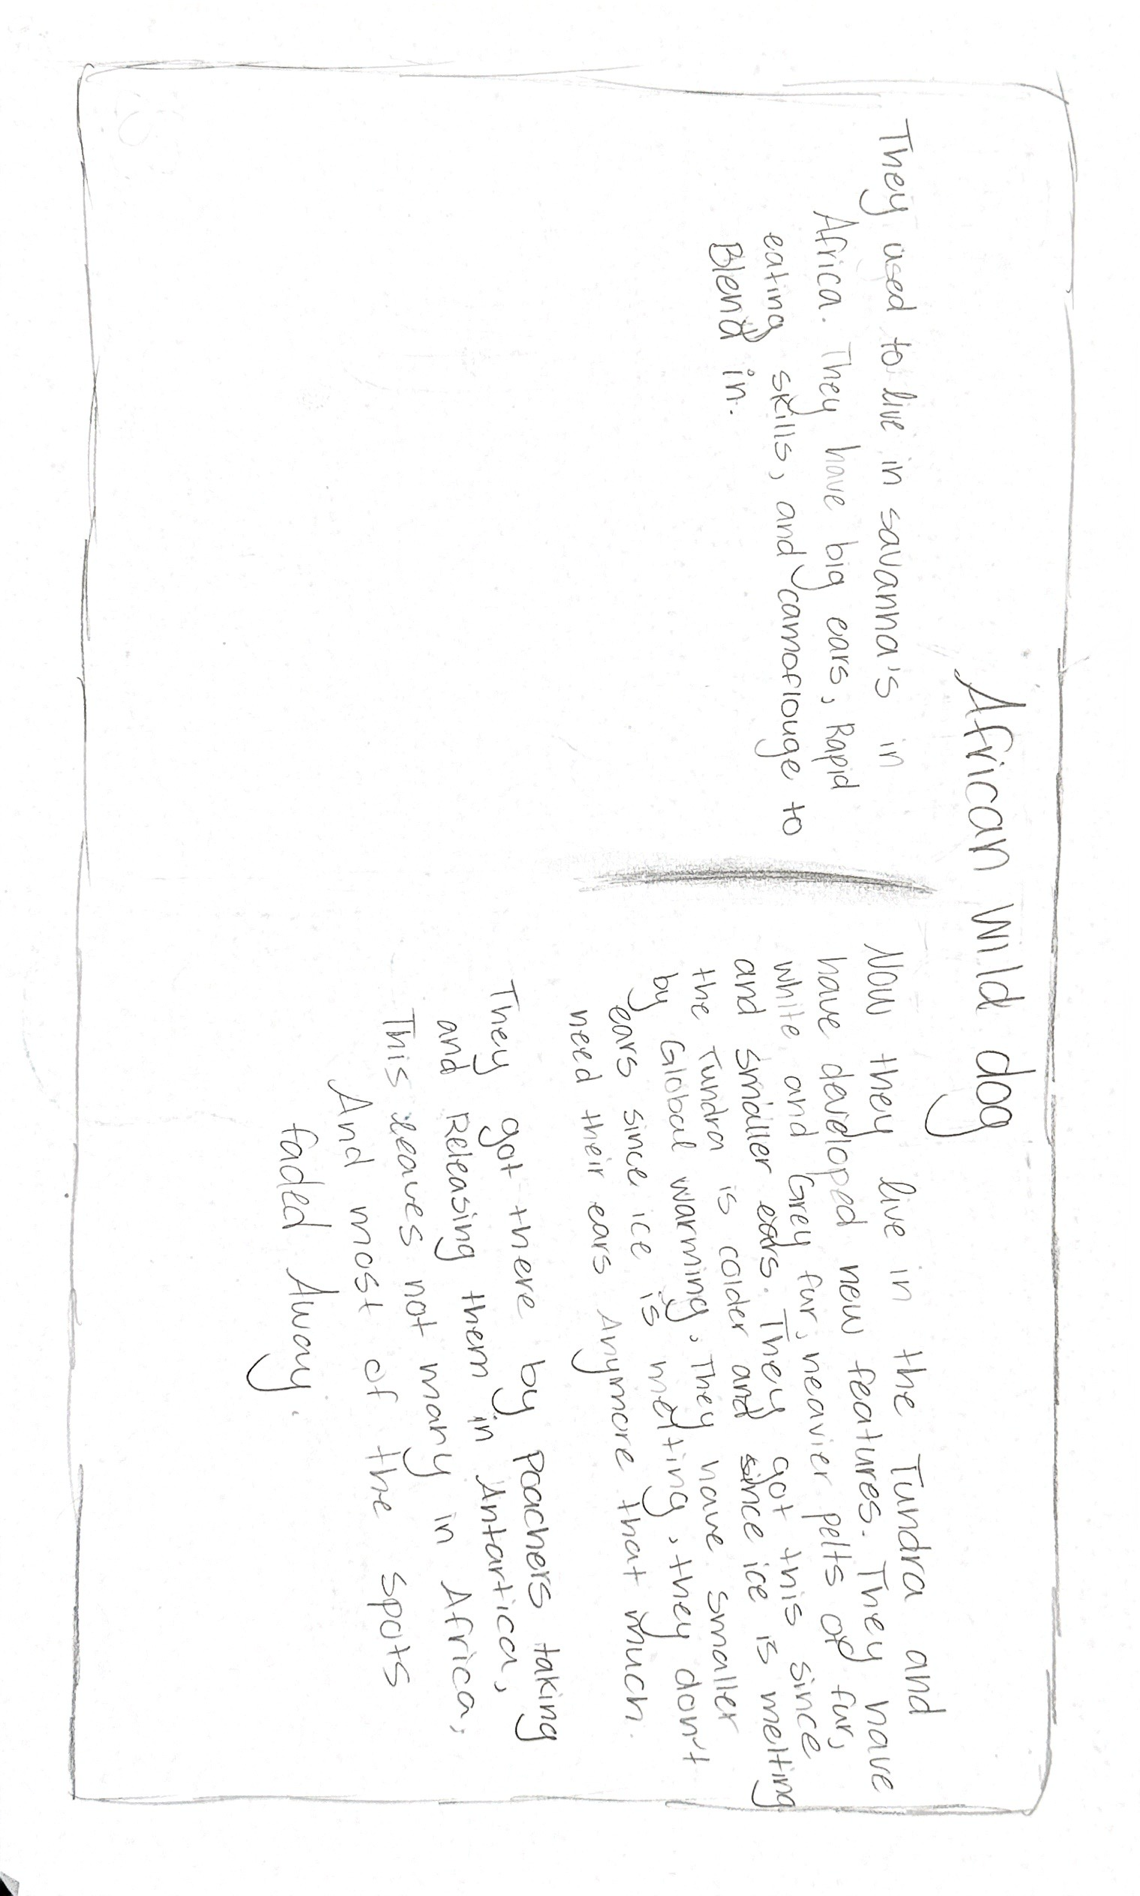 African wild dog
They used to live in savanna's in
Africa. They have big ears, Rapid
eating skills, and camoflouge to
Blend in.
Now they live in the Tundra and
have developed new features. They have
white and Grey fur, heavier pelts of fur,
and smaller ears. They got this since
the Tundra is colder and since ice is melting
by Global warming. They have smaller
ears since ice is melting, they don't
need their ears Anymore that much.
They got there by Poachers taking
and Releasing them in Antartica,
This leaves not many in Africa,
And most of the spots
faded Away.